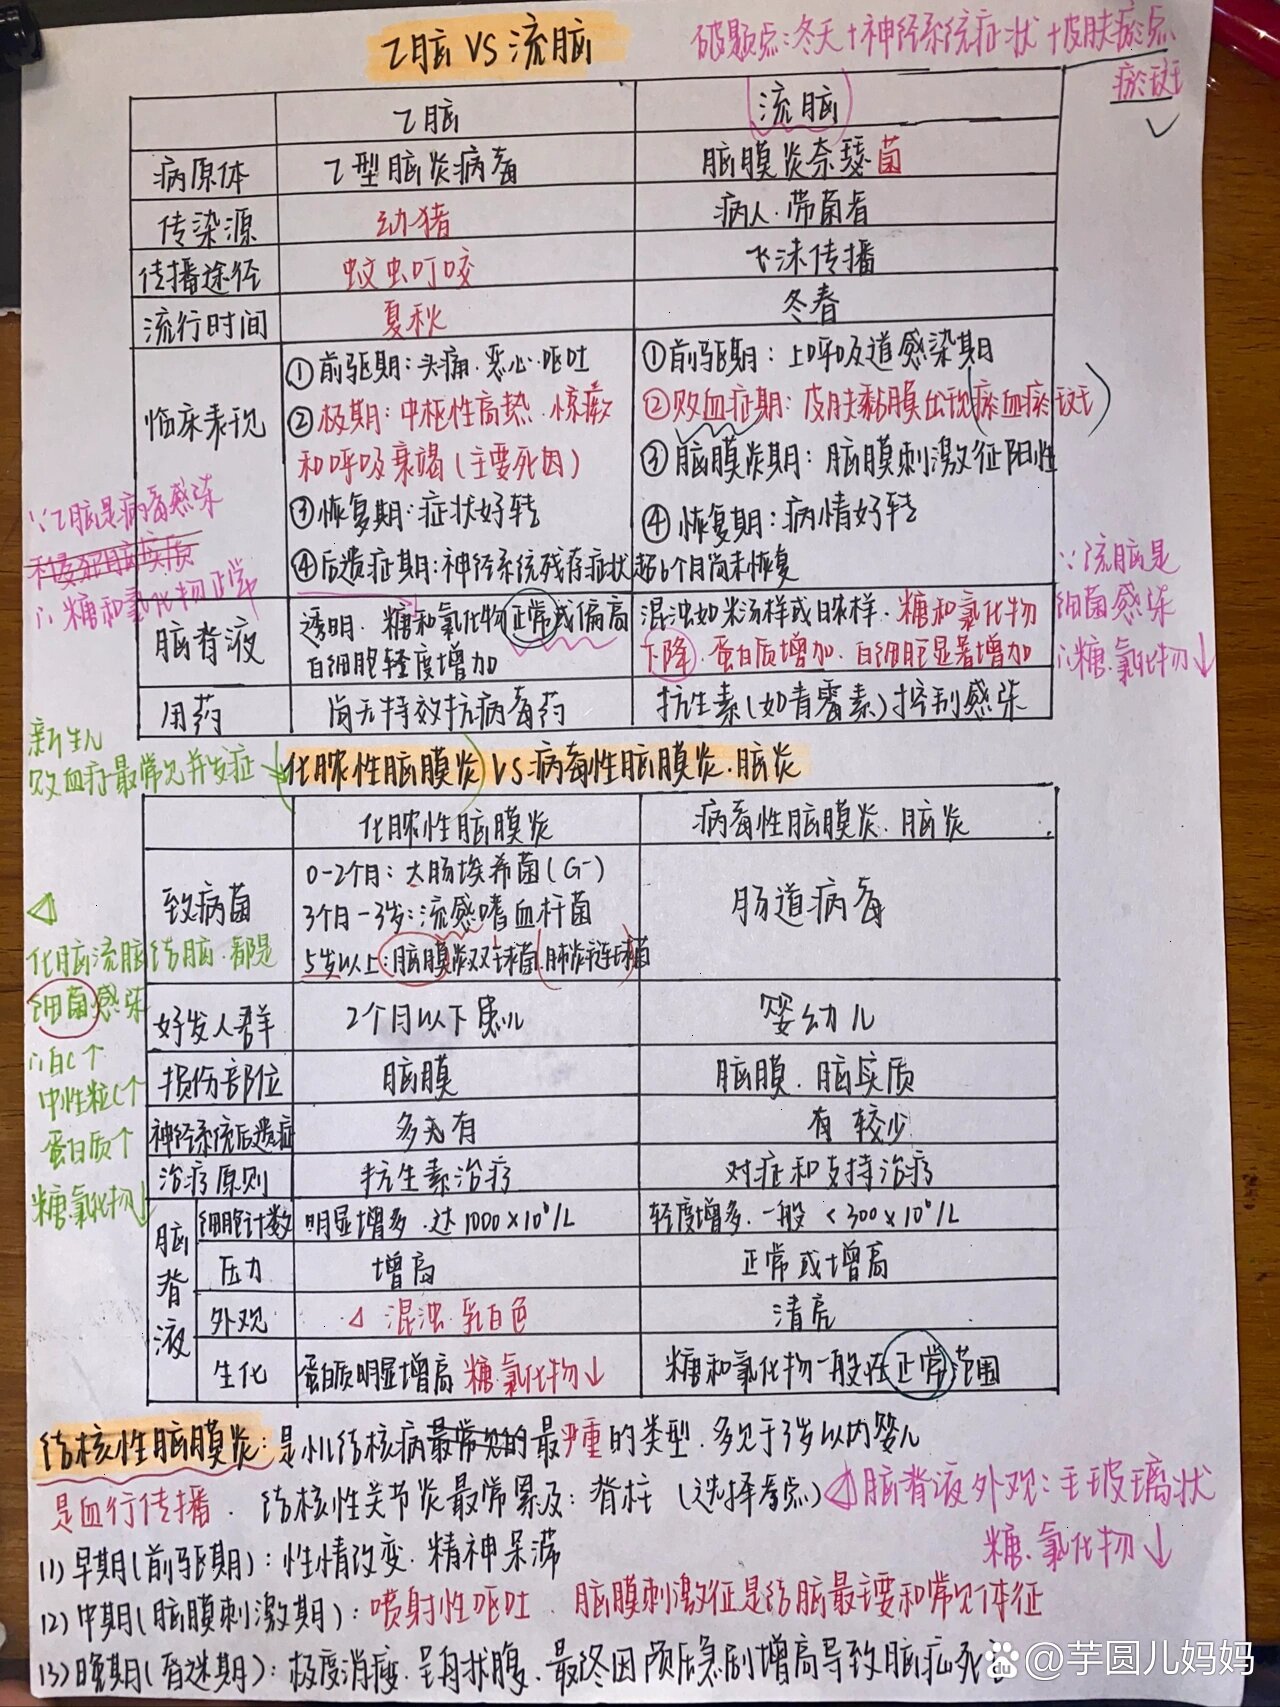 乙脑 VS 流脑
破题点:冬天+神经系统症状+皮肤瘀点
瘀斑
乙脑 流脑
病原体 乙型脑炎病毒 脑膜炎奈瑟菌
传染源 幼猪 病人.带菌者
传播途径 蚊虫叮咬 飞沫传播
流行时间 夏秋 冬春
临床表现
①前驱期:头痛.恶心.呕吐
②极期:中枢性高热.惊厥
和呼吸衰竭(主要死因)
③恢复期:症状好转
④后遗症期:神经系统残存症状超6个月尚未恢复
①前驱期:上呼吸道感染期
②败血症期:皮肤黏膜出现(瘀血瘀斑)
③脑膜炎期:脑膜刺激征阳性
④恢复期:病情好转
∵乙脑是病毒感染
不侵犯脑实质
∴糖和氯化物正常
脑脊液
透明.糖和氯化物正常或偏高
白细胞轻度增加
混浊如米汤样或脓样.糖和氯化物
下降.蛋白质增加.白细胞显著增加
∵流脑是
细菌感染
∴糖.氯化物↓
用药 尚无特效抗病毒药 抗生素(如青霉素)控制感染
新生儿
败血症最常见并发症
化脓性脑膜炎 VS 病毒性脑膜炎.脑炎
化脓性脑膜炎 病毒性脑膜炎.脑炎
致病菌
0-2个月:大肠埃希菌(G-)
3个月-3岁:流感嗜血杆菌
5岁以上:脑膜炎双球菌.(肺炎链球菌)
肠道病毒
化脑流脑结脑.都是
细菌感染
∴白C↑
中性粒C↑
蛋白质↑
糖.氯化物↓
好发人群 2个月以下患儿 婴幼儿
损伤部位 脑膜 脑膜.脑实质
神经系统后遗症 多见有 有 较少
治疗原则 抗生素治疗 对症和支持治疗
脑脊液
细胞计数 明显增多.达1000×10⁶/L 轻度增多.一般<300×10⁶/L
压力 增高 正常或增高
外观 混浊.乳白色 清亮
生化 蛋白质明显增高 糖.氯化物↓ 糖和氯化物一般在正常范围
结核性脑膜炎:是小儿结核病最常见的最严重的类型.多见于3岁以内婴儿
是血行传播.结核性关节炎最常累及:脊柱(选择考点)
脑脊液外观:毛玻璃状
糖.氯化物↓
(1)早期(前驱期):性情改变.精神呆滞
(2)中期(脑膜刺激期):喷射性呕吐.脑膜刺激征是结脑最主要和常见体征
(3)晚期(昏迷期):极度消瘦.呈舟状腹.最终因颅压急剧增高导致脑疝死亡
@芋圆儿妈妈